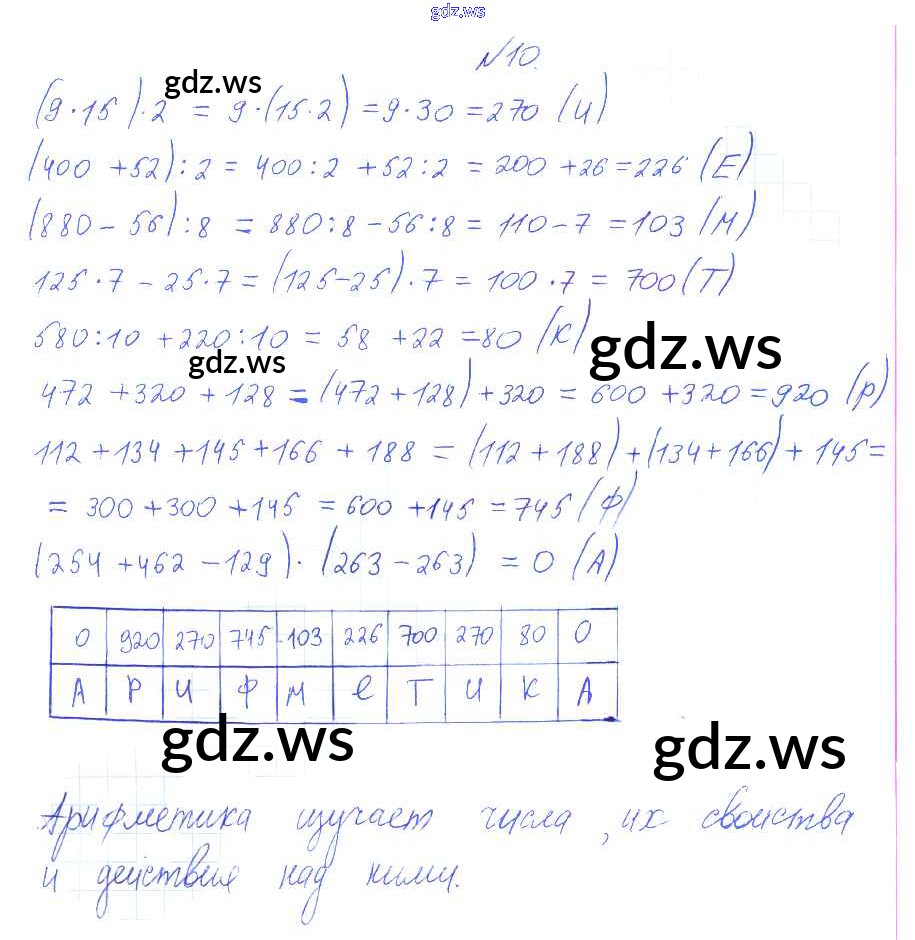 gdz.ws
№10.
gdz.ws
(9·15)·2 = 9·(15·2) = 9·30 = 270 (И)
(400 + 52) : 2 = 400 : 2 + 52 : 2 = 200 + 26 = 226 (Е)
(880 - 56) : 8 = 880 : 8 - 56 : 8 = 110 - 7 = 103 (М)
125 · 7 - 25 · 7 = (125-25) · 7 = 100 · 7 = 700 (Т)
580:10 + 220:10 = 58 + 22 = 80 (К)
gdz.ws
gdz.ws
472 + 320 + 128 = (472 + 128) + 320 = 600 + 320 = 920 (Р)
112 + 134 + 145 + 166 + 188 = (112 + 188) + (134 + 166) + 145 =
= 300 + 300 + 145 = 600 + 145 = 745 (Ф)
(254 + 462 - 129) · (263 - 263) = 0 (А)
0 920 270 745 103 226 700 270 80 0
А Р И Ф М Е Т И К А
gdz.ws
gdz.ws
Арифметика изучает числа, их свойства
и действия над ними.